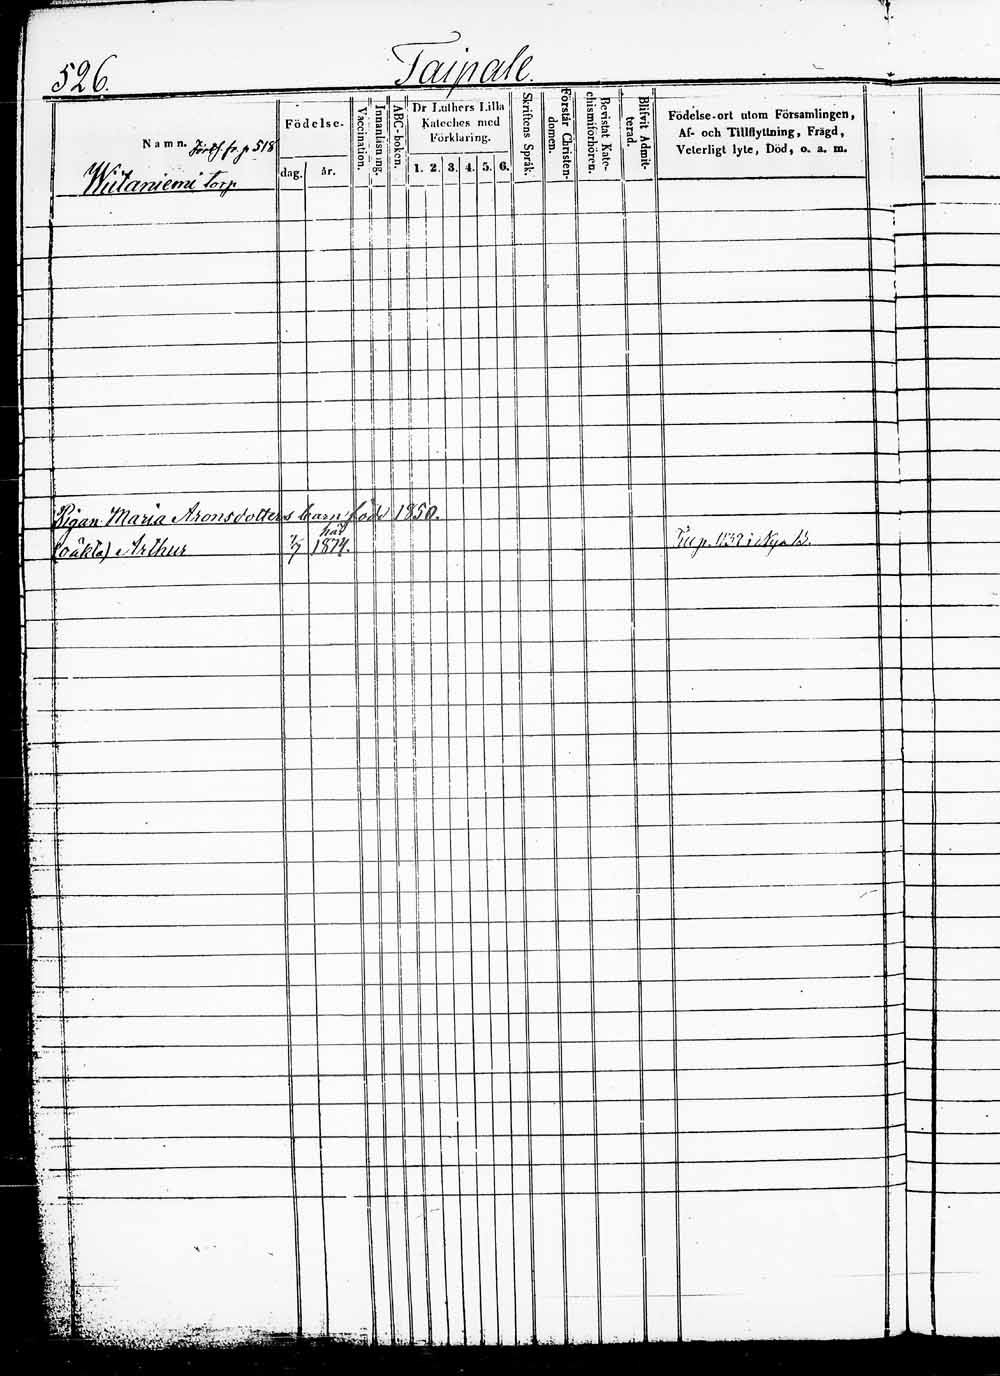 526.
Taipale.
Namn. Forts. fr. p 518
Födelse-
dag. år.
Vaccination.
Innanläsning.
ABC-boken.
Dr Luthers Lilla
Kateches med
Förklaring.
1. 2. 3. 4. 5. 6.
Skriftens Språk.
Förstår Christen-
domen.
Bevistat Kate-
chismiförhören.
Blifvit Admit-
terad.
Födelse-ort utom Församlingen,
Af- och Tillflyttning, Frägd,
Veterligt lyte, Död, o. a. m.
Wiitaniemi torp
Pigan Maria Aronsdotters barn född 1850.
här
(oäkta) Arthur 7/7 1874. i Nya b.